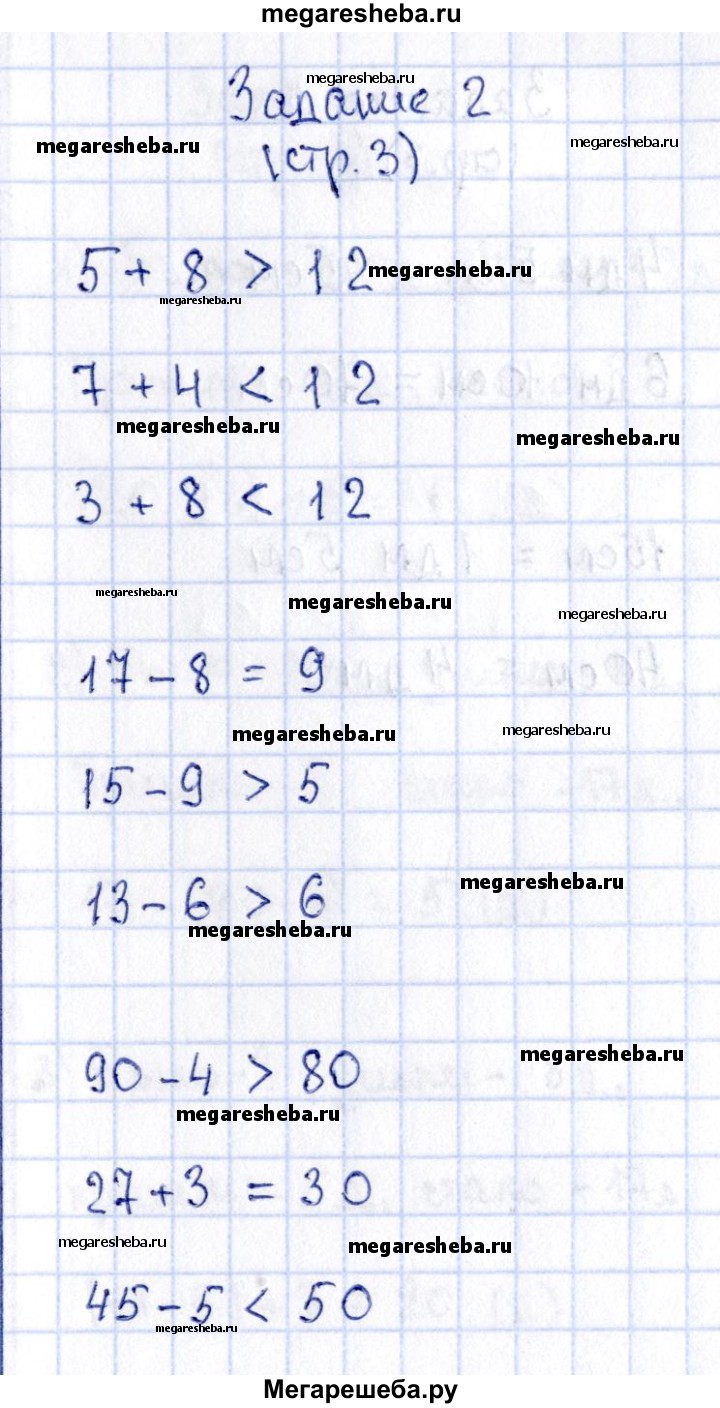 megaresheba.ru
megaresheba.ru
Задание 2
megaresheba.ru
megaresheba.ru
(стр. 3)
5 + 8 > 12
megaresheba.ru
megaresheba.ru
7 + 4 < 12
megaresheba.ru
megaresheba.ru
3 + 8 < 12
megaresheba.ru
megaresheba.ru
megaresheba.ru
17 - 8 = 9
megaresheba.ru
megaresheba.ru
15 - 9 > 5
megaresheba.ru
13 - 6 > 6
megaresheba.ru
megaresheba.ru
90 - 4 > 80
megaresheba.ru
27 + 3 = 30
megaresheba.ru
megaresheba.ru
45 - 5 < 50
megaresheba.ru
Мегарешеба.ру